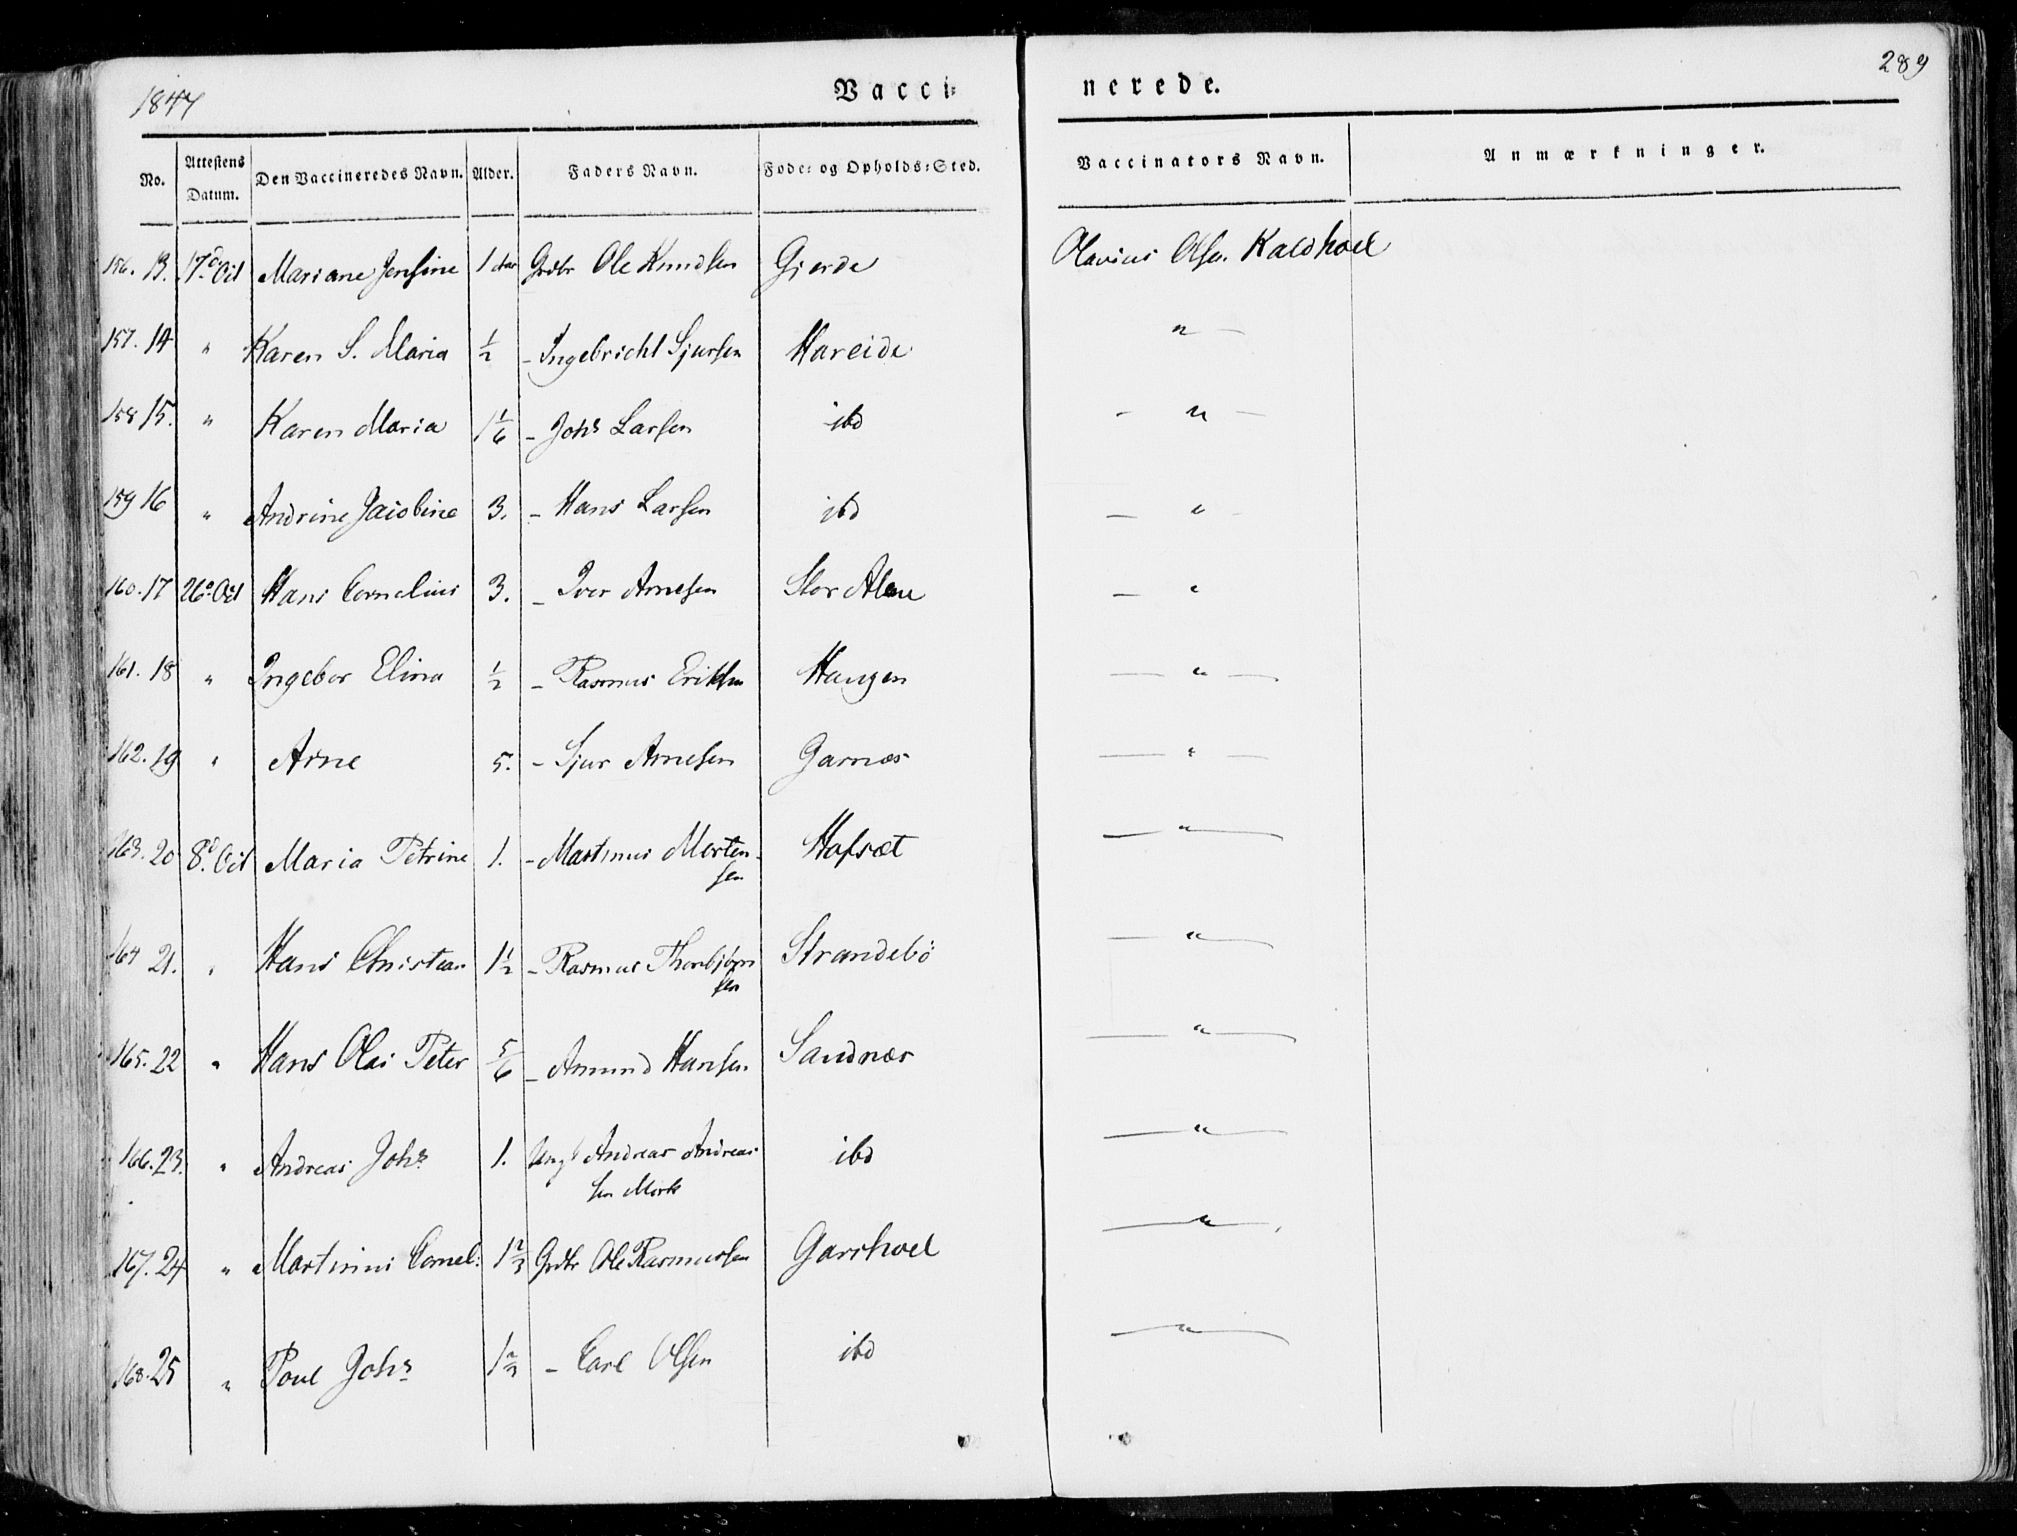 1847 Vacci= nerede. 289
No. Attestens Datum. Den Vaccineredes Navn. Alder. Faders Navn. Føde= og Opholds=Sted. Vaccinators Navn. Anmærkninger.
156. 13. 17d Oct Mariane Jensine 1 Aar Grdbr Ole Knudsen Gjerde Olavius Olsen Kaldhoel
157. 14 " Karen S. Maria 1/2 - Ingebricht Sjursen Hareide " -
158 15. " Karen Maria 1 1/6 - Johs Larsen ibd - " -
159 16 " Andrine Jacobine 3. - Hans Larsen ibd - " -
160. 17 26d Oct Hans Cornelius 3. - Iver Arnesen - "
161. 18 " Ingebor Elina 1/2 - Rasmus Eriksen Haugen - " -
162. 19 " Arne 5. - Sjur Arnesen Garnæs - " -
163. 20 8d Oct Maria Petrine 1. - Martinus Morten- Hofsæt - " -
sen
164 21. " Hans Christian 1 1/2 - Rasmus Thorbjørn Strandebö - " -
sen
165. 22 " Hans Olai Peter 5/6 - Amund Hansen Sandnær - " -
166. 23. " Andreas Johs 1. Ungk Andreas Andreas ibd - " -
sen Mork
167. 24 " Martinus Cornel: 1 2/3 Grdbr Ole Rasmussen Garshoel - " -
168. 25 " Poul Johs 1 2/3 - Carl Olsen ibd - " -